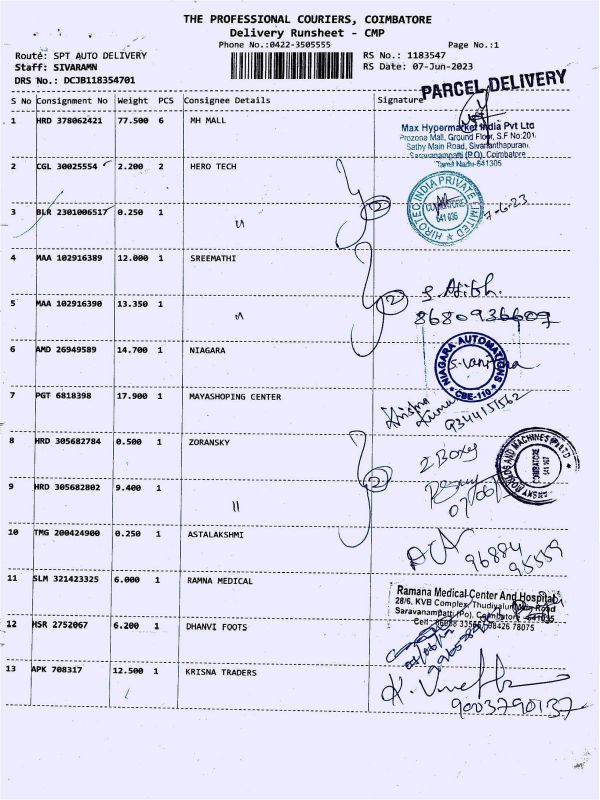 THE PROFESSIONAL COURIERS, COIMBATORE
Delivery Runsheet - CMP
Phone No.:0422-3505555 Page No.:1
Route: SPT AUTO DELIVERY RS No.: 1183547
Staff: SIVARAMN RS Date: 07-Jun-2023
DRS No.: DCJB118354701
PARCEL DELIVERY
S No Consignment No Weight PCS Consignee Details Signature
1 HRD 378062421 77.500 6 MH MALL
Max Hypermarket India Pvt Ltd
Prozone Mall, Ground Floor, S.F No:201,
Sathy Main Road, Sivanthapuram,
Saravanampatti (P.O), Coimbatore
Tamil Nadu-641305
2 CGL 30025554 2.200 2 HERO TECH
HIROTEC INDIA PRIVATE LIMITED
COIMBATORE
641 035
2
7-6-23
3 BLR 2301006517 0.250 1 "
4 MAA 102916389 12.000 1 SREEMATHI
2
8680936609
5 MAA 102916390 13.350 1 "
6 AMD 26949589 14.700 1 NIAGARA
NIAGARA AUTOMATIONS
CBE-110
7 PGT 6818398 17.900 1 MAYASHOPING CENTER
Krishna
Kumar
9344151562
8 HRD 305682784 0.500 1 ZORANSKY
2 Boxes
MOULDS AND MACHINES (P) LTD
COIMBATORE
2
07/06
9 HRD 305682802 9.400 1 "
10 TMG 200424900 0.250 1 ASTALAKSHMI
96884
95559
11 SLM 321423325 6.000 1 RAMNA MEDICAL
Ramana Medical Center And Hospital
28/6, KVB Complex, Thudiyalur Main Road
Saravanampatty (Po), Coimbatore - 641035
12 HSR 2752067 6.200 1 DHANVI FOOTS
13 APK 708317 12.500 1 KRISNA TRADERS
9003790137